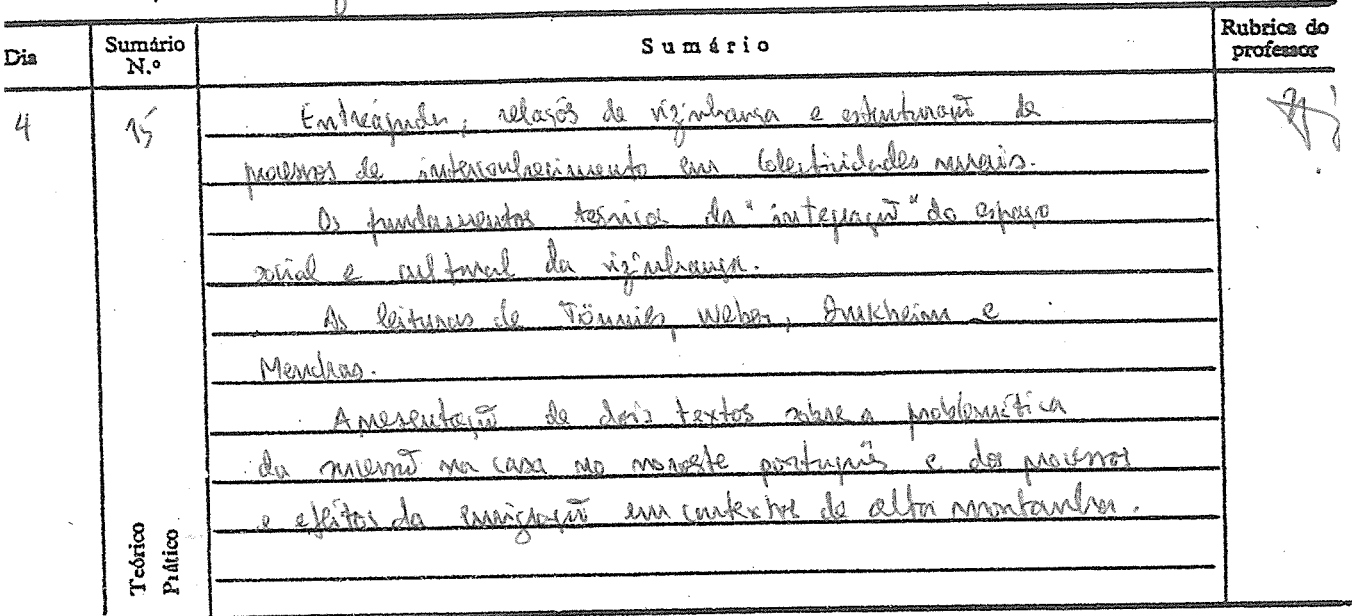 Dia
Sumário N.º
Sumário
Rubrica do professor
4
15
Entreajudas, relações de vizinhança e estruturação de
processos de interconhecimento em colectividades rurais.
Os fundamentos da "integração" do espaço
social e cultural da vizinhança.
As leituras de Tönnies, Weber, Durkheim e
Mendras.
Apresentação de dois textos sobre a problemática
da sucessão na casa no noroeste português e dos processos
e efeitos da emigração em contextos de alta montanha.
Teórico
Prático